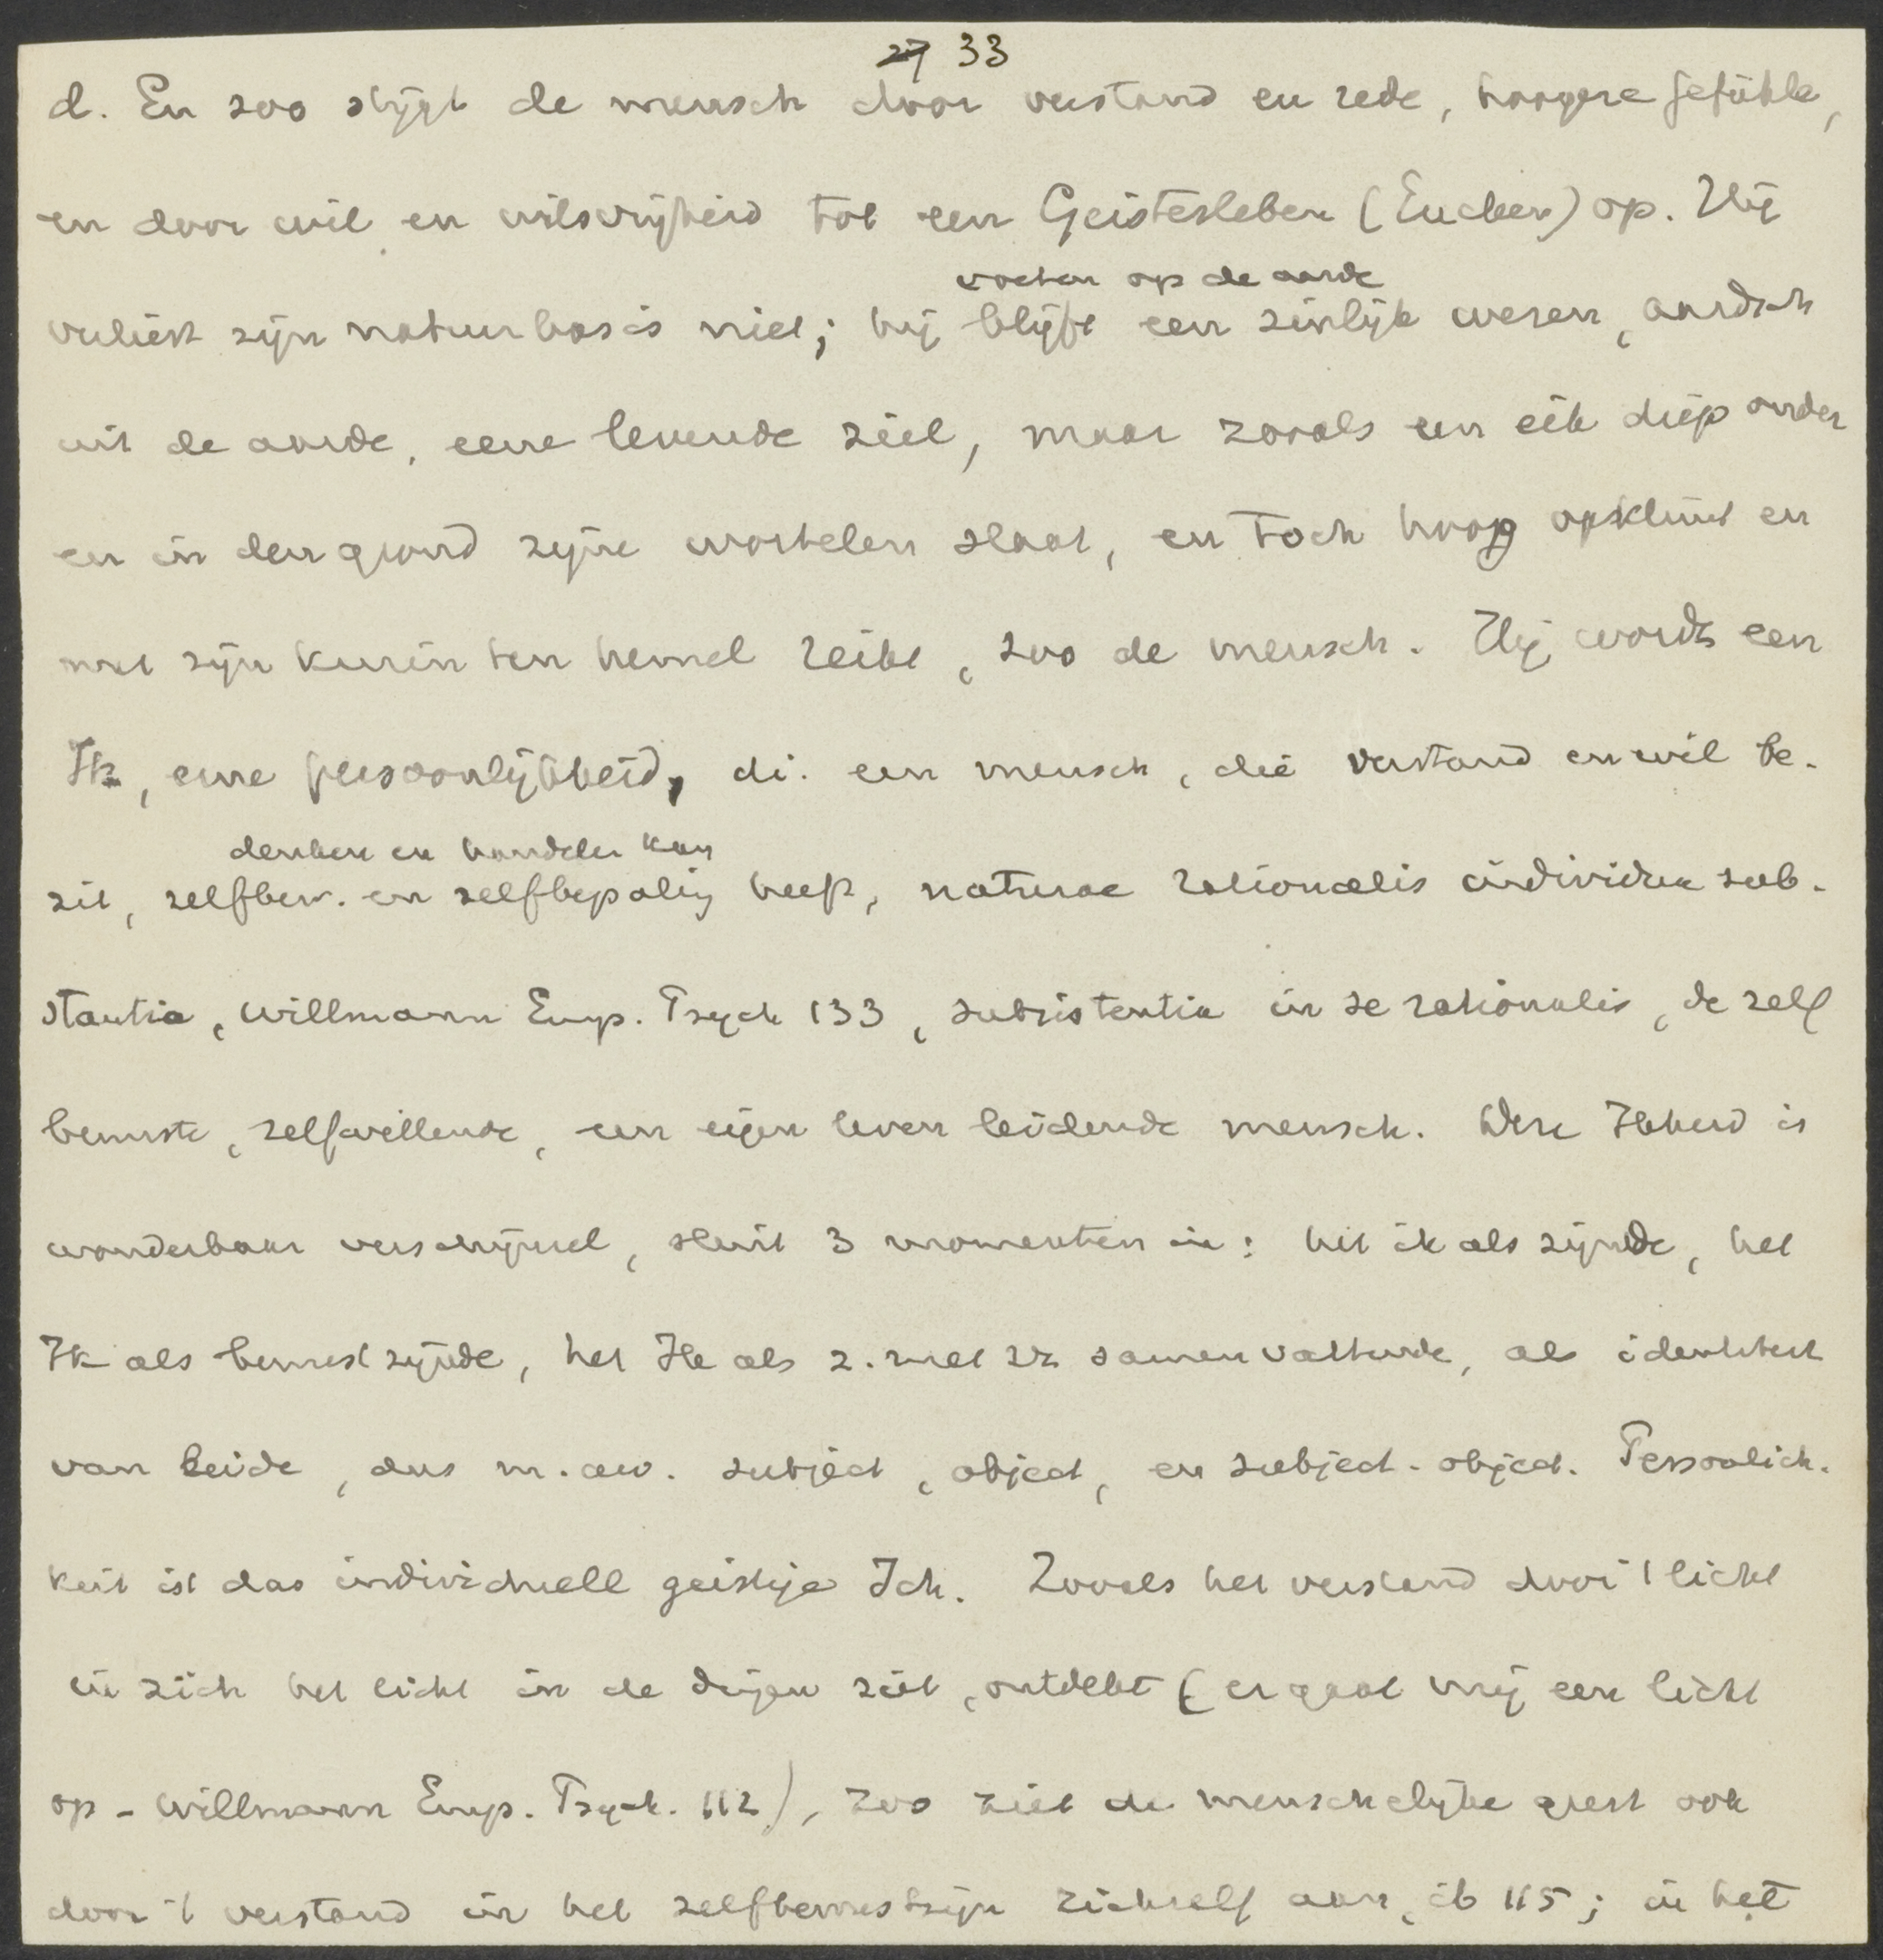 27 33
d. En zoo stijgt de mensch door verstand en rede, hoogere gefühle,
en door wil en wilsvrijheid tot een Geistesleben (Eucken) op. Hij
verliest zijn natuurbasis niet; hij blijft een zinlijk wezen, aardsch
voeten op de aarde
uit de aarde, eene levende ziel, maar zooals een eik diep onder
en in den grond zijne wortelen slaat, en toch hoog opklimt en
met zijn kruin ten hemel reikt, zoo de mensch. Hij wordt een
Ik, eene persoonlijkheid, di. een mensch, die verstand en wil be-
denken en handelen kan
zit, zelfbew. en zelfbepaling heeft, naturae rationalis individua sub-
stantia, Willmann Emp. Psych 133, subsistentia in se rationalis, de zelf
bewuste, zelfwillende, een eigen leven leidende mensch. Deze Ikheid is
wonderbaar verschijnsel, sluit 3 momenten in: het ik als zijnde, het
Ik als bewust zijnde, het Ik als 2. met zich samenvallende, als identiteit
van beide, dus m.a.w. subject, object, en subject-object. Persönlich-
keit ist das individuell geistige Ich. Zooals het verstand door 't licht
in zich het licht in de dingen ziet, ontdekt (er gaat mij een licht
op - Willmann Emp. Psych. 112), zoo ziet de menschelijke geest ook
door 't verstand in het zelfbewustzijn zichzelf aan, ib 115; in het